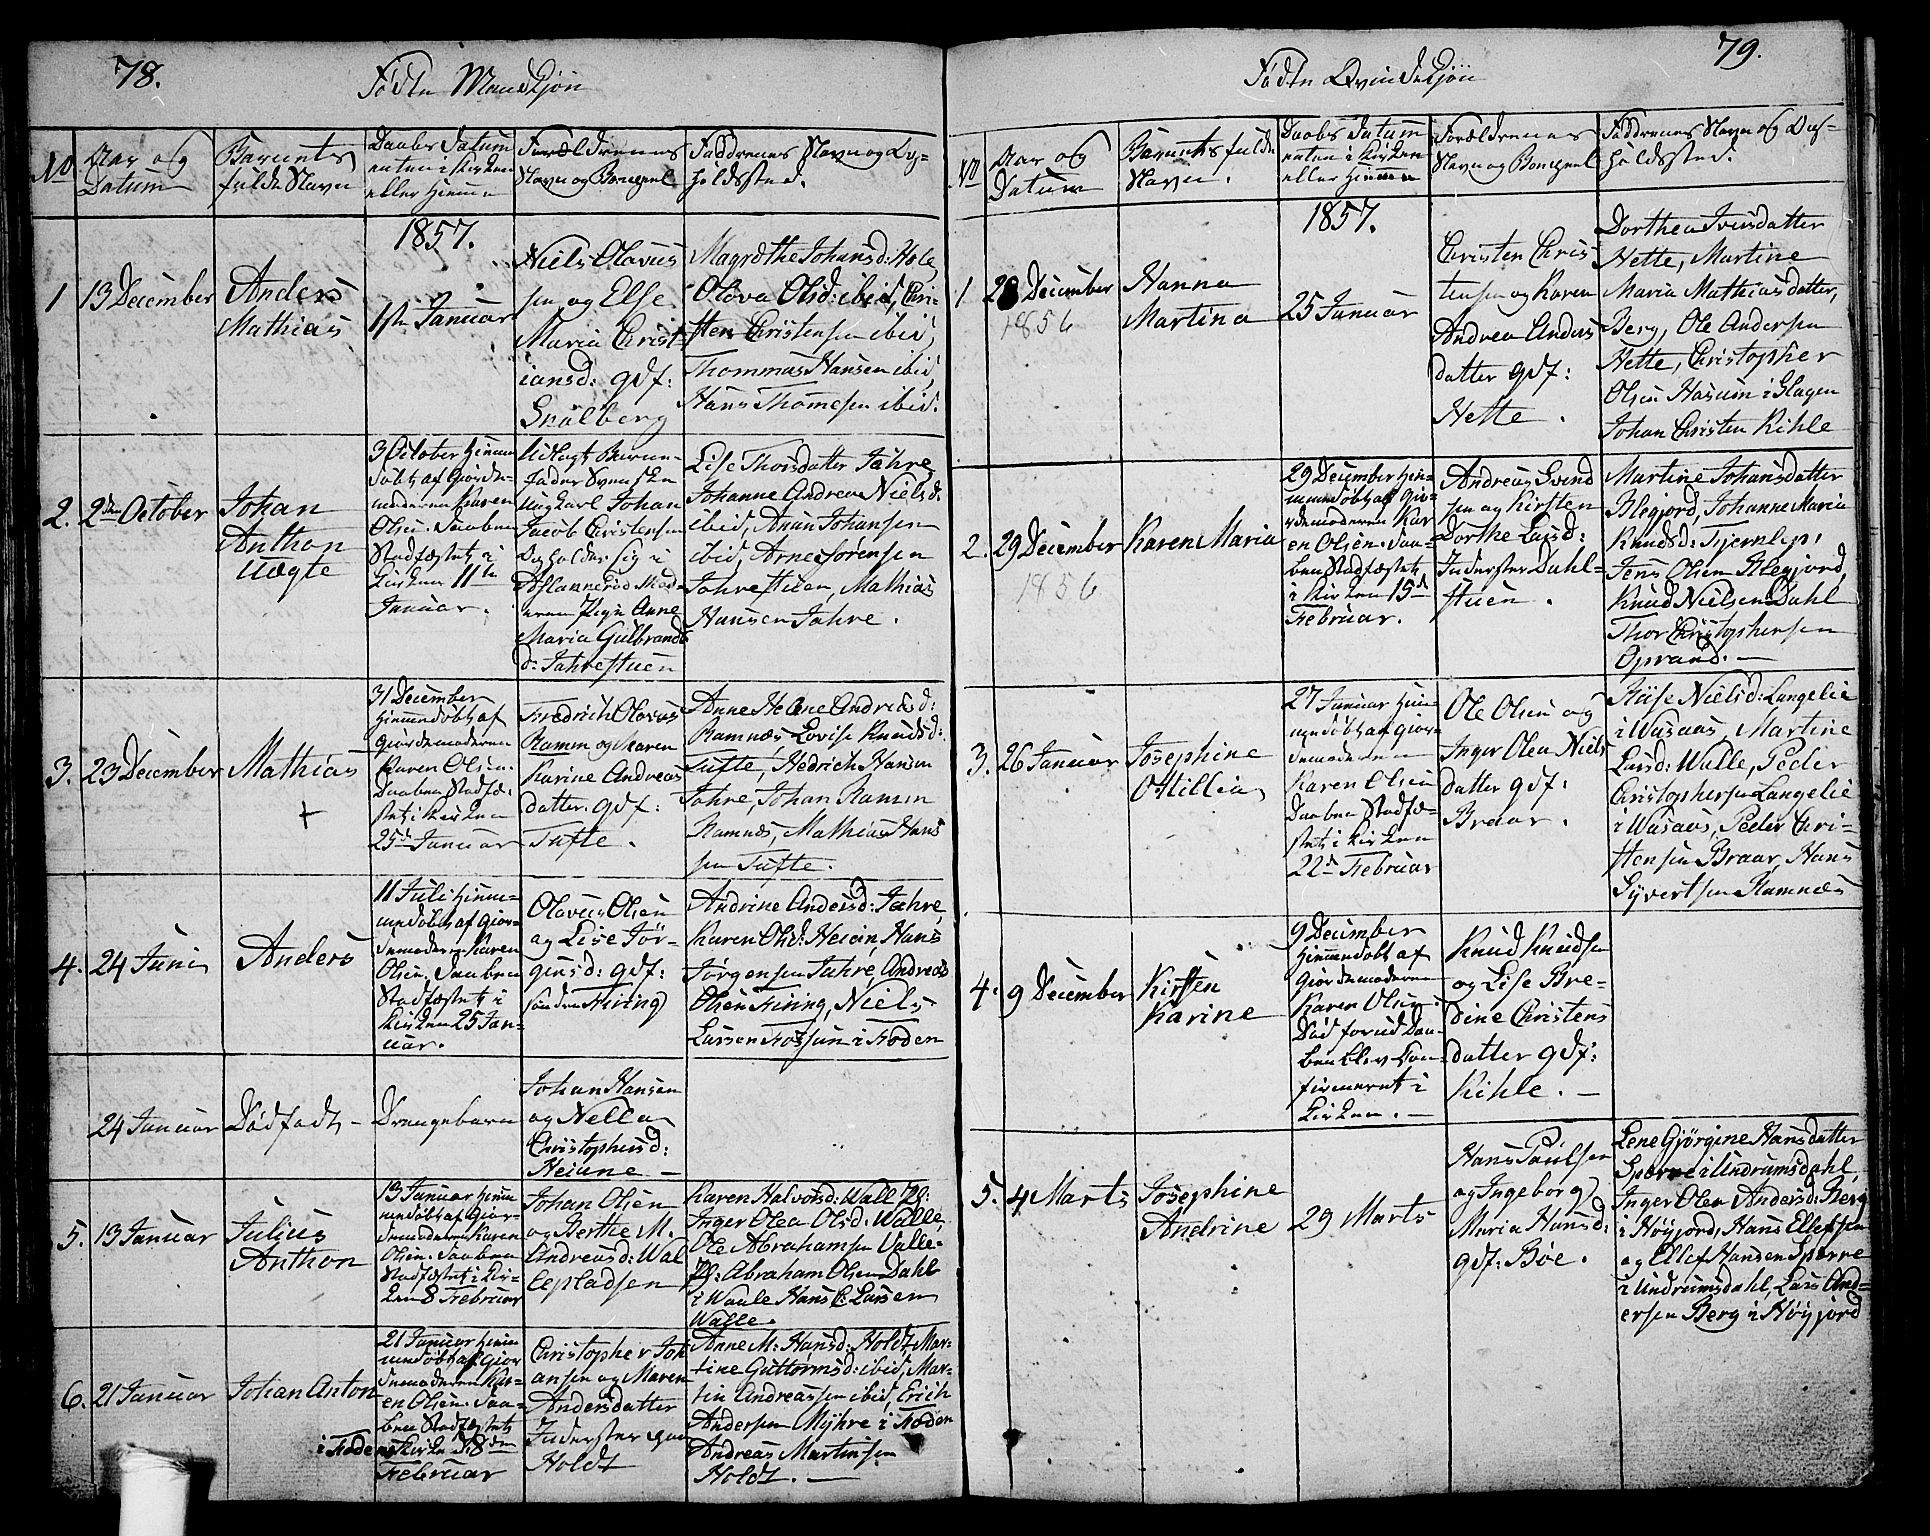 78.
Fødte Mandkjøn
No
Aar og
Datum
Barnets
fulde Navn
Daabs Datum
enten i Kirken
eller Hjemme
Forældrenes
Navn og Bopæl
Faddrenes Navn og Op-
holdssted.
1857.
1
13 December
Anders
Mathias
1ste Januar
Niels Olavus
sen og Else
Maria Christ-
iansd: gdf:
Snalberg
Magrethe Johansd: Hole,
Olova Olsd: ibid, Chri-
sten Christensen ibid,
Thommas Hansen ibid,
Hans Thomesen ibid.
2.
2den October
Johan
Anthon
Uægte
3 October Hjemme
døbt af Giorde-
moderen Karen
Olsen. Daaben
Stadfæstet i
Kirken 11te
Januar.
Udlagt Barne-
fader Svenske
ungkarl Johan
Jacob Christensen
Opholder sig i
Mod-
eren Pige Anne
Maria Gulbrands
d: Jahrestuen
Lise Thorsdatter Jahre,
Johanne Andrea Nielsd:
ibid, Anun Johansen
ibid, Arne Sørensen
Jahrestuen, Mathias
Hansen Jahre.
3.
23 December
Mathias
+
31 December
Hjemmedøbt af
Giordemoderen
Karen Olsen.
Daaben Stadfæ-
stet i Kirken
25de Januar
Fredrich Olavus
Ramm og Maren
Karine Andreas
datter. gdf:
Tufte.
Anne Helene Andreasd:
Ramnæs Lovise Knudsd:
Tufte, Hedrich Hansen
Jahre, Johan Ramm
Ramnæs, Mathias Hans
sen Tufte.
4.
24 Juni
Anders
11 Juli Hjem-
medøbt af Gjor-
demoderen Karen
Olsen. Daaben
Stadfæstet i
Kirken 25 Jan-
uar.
Olavus Olsen
og Lise Jør-
gensd: gdf:
søndre Firing
Andrine Andersd: Jahre,
Karen Olsd: Heian, Hans
Jørgensen Jahre, Andreas
Olsen Firing, Niels
Larsen Fossum i Foden
24 Januar
Dødfødt -
Drengebarn
Johan Hansen
og Nella
Christophersd:
Heiene -
5.
13 Januar
Julius
Anthon
13 Januar Hjem
medøbt af Gior-
demoderen Karen
Olsen. Daaben
Stadfæstet i Kir-
ken 8 Februar
Johan Olsen
og Berthe M.
Andreasd: Wal
lepladsen
Karen Halvorsd: Wall Pl:
Inger Olea Olsd: Walle,
Ole Abrahamsen Valle-
Pl: Abraham Olsen Dahl
i Waale Hans C: Larsen
Walle.
6.
21 Januar
Johan Anton
21 Januar Hjem
medøbt af Gjor
demoderen Kar-
en Olsen. Daa-
ben Stadfæstet
i Fodens Kirke d 8den
Februar
Christopher Joh
ansen og Maren
Andersdatter
Inderster paa
Holdt
Anne M: Hansd: Holdt, Mar-
tine Guttormsd: ibid, Mar-
tin Andreassen ibid, Erich
Andersen Myhre i Foden
Andreas Martinsen
Holdt. -
79.
Fødte Qvindekjøn
No
Aar og
Datum
Barnets fulde
Navn.
Daabs Datum
enten i Kirken
eller Hjemme
Forældrenes
Navn og Bopæl
Faddrenes Navn og Op-
holdssted.
1857.
1.
28 December
1856
Hanna
Martina
25 Januar
Christen Chris
tensen og Karen
Andrea Anders
datter gdf:
Hette.
Dorthea Iversdatter
Hette, Martine
Maria Mathiasdatter,
Berg, Ole Andersen
Hette, Christopher
Olsen Hasum i Slagen
Johan Christen Kihle
2.
29 December
1856
Karen Maria
29 December Hjem-
medøbt af Gjo-
rdemoderen Kar
en Olsen. Daa-
ben Stadfæstet
i Kirken 15de
Februar.
Andreas Svend
sen og Kirsten
Dorthe Larsd:
Inderster Dahl-
stuen.
Martine Johansdatter
Blegjord, Johanne Maria
Knudsd:
Jens Olsen Blegjord,
Knud Nielsen Dahl
Thor Christophersen
Oprand. -
3.
26 Januar
Josephine
Ottillia
27 Januar Hjem
medøbt af Gjor-
demoderen
Karen Olsen
Daaben Stadfæ-
stet i Kirken
22de Februar
Ole Olsen og
Inger Olea Niels
datter gdf:
Braar.
Riise Nielsd: Langelie
i Wasaas, Martine
Larsd: Walle, Peder
Christophersen Langelie
i Wasaas, Peder Chri-
stensen Braar, Hans
Syvertsen Ramnæs
4.
9 December
Kirsten
Karine
9 December
Hjemmedøbt af
Gjordemoderen
Karen Olsen.
Død forud Daa-
ben blev Con-
firmeret i
Kirken. -
Knud Knudsen
og Lise Bre-
dine Christens
datter gdf:
Kihle. -
5.
4 Marts
Josephine
Andrine
29 Marts
Hans Paulsen
og Ingeborg
Maria Hansd:
gdf: Bøe.
Lene Gjørgine Hansdatter
Sperre i Undrumsdahl,
Inger Olea Andersd: Berg
i Høyjord, Hans Ellefsen
og Ellef Hansen Sperre
i Undrumsdahl, Lars And-
ersen Berg i Høyjord